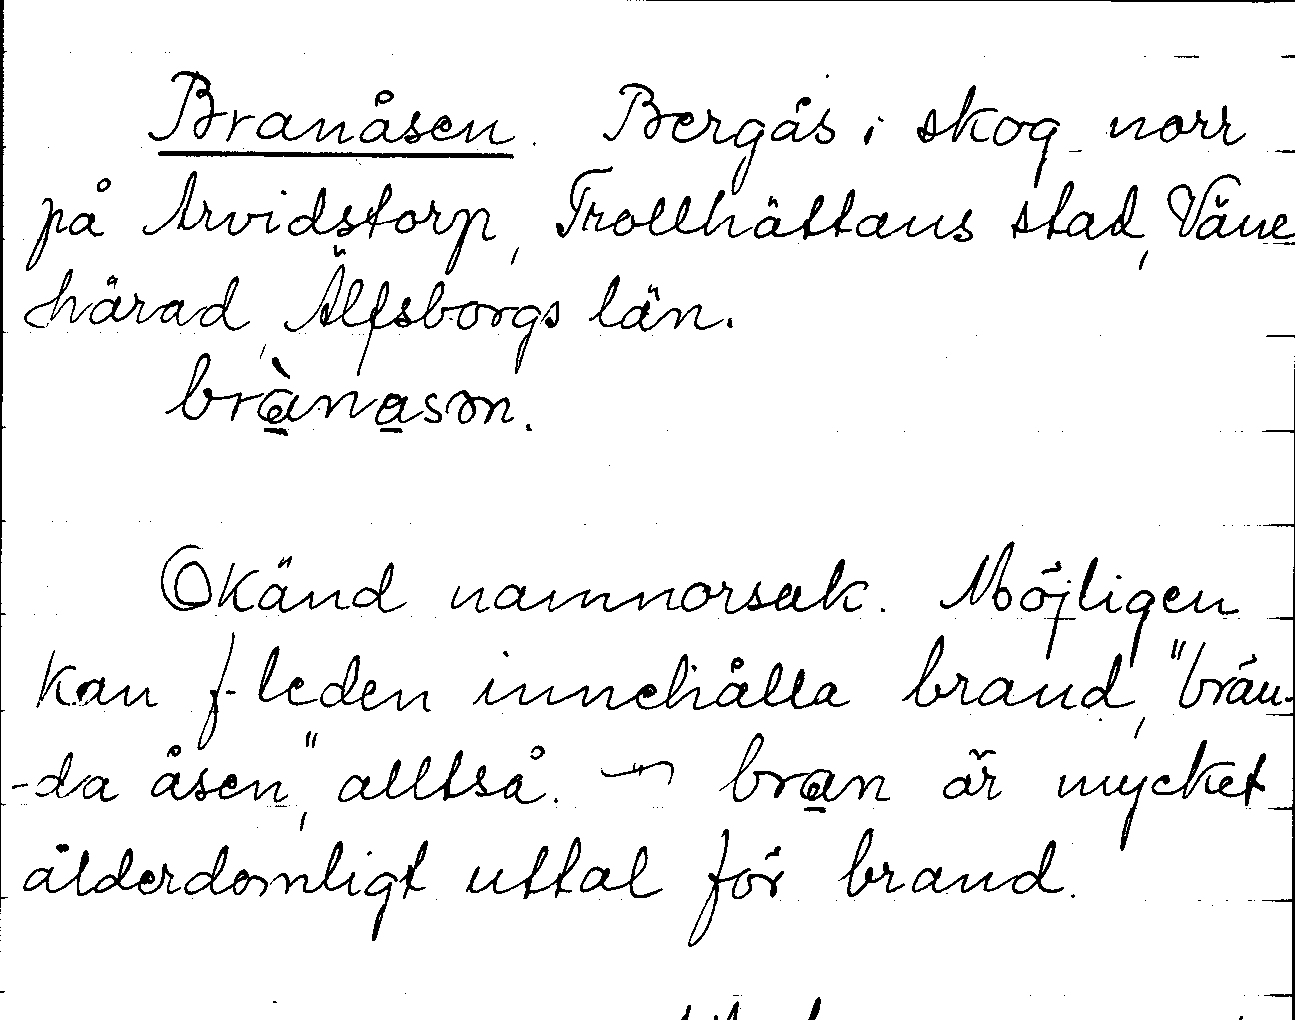 Branåsen. Bergås i skog norr
på Arvidstorp, Trollhättans stad, Väne
härad, Älfsborgs län.
brànasen.
Okänd namnorsak. Möjligen
kan f-leden innehålla brand, "brän-
-da åsen", alltså. — bran är mycket
ålderdomligt uttal för brand.